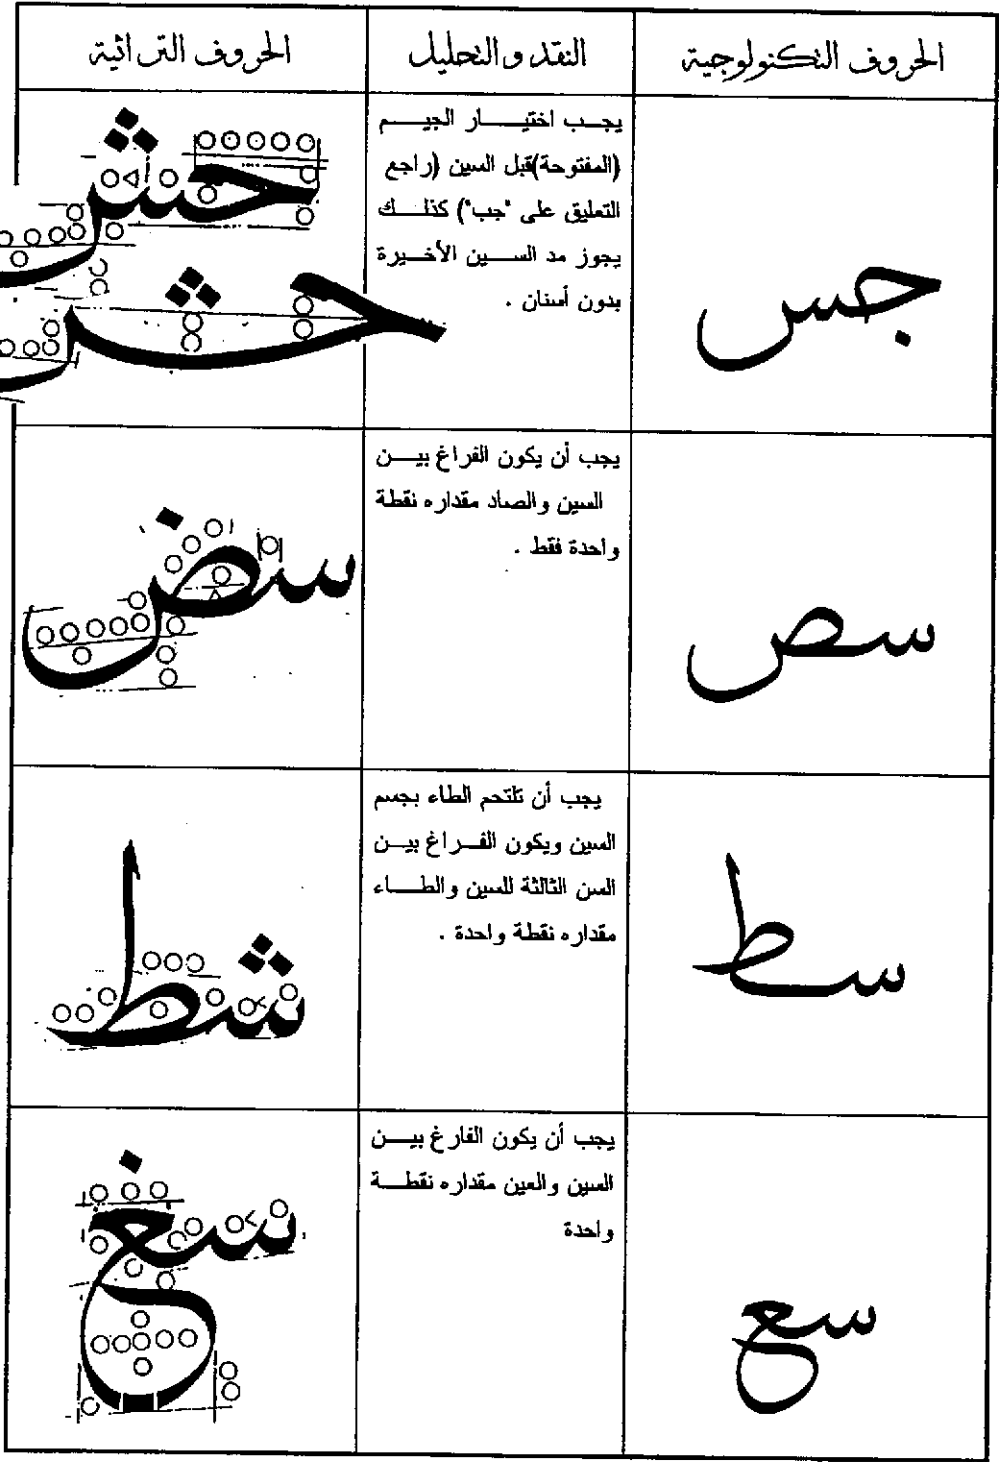 الحروف التكنولوجية
النقد والتحليل
الحروف التراثية
جس
يجب اختيار الجيم
(المفتوحة)قبل السين (راجع
التعليق على "جب") كذلك
يجوز مد السين الأخيرة
بدون أسنان .
حش
حش
سص
يجب أن يكون الفراغ بين
السين والصاد مقداره نقطة
واحدة فقط .
سض
سط
يجب أن تلتحم الطاء بجسم
السين ويكون الفراغ بين
السن الثالثة للسين والطاء
مقداره نقطة واحدة .
شط
سع
يجب أن يكون الفارغ بين
السين والعين مقداره نقطة
واحدة
سغ